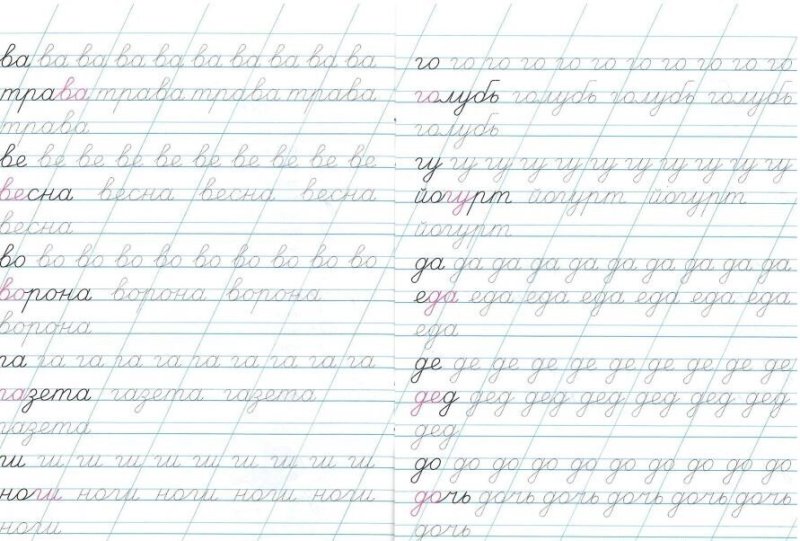 ва ва ва ва ва ва ва ва ва ва
трава трава трава трава
трава
ве ве ве ве ве ве ве ве ве ве
весна весна весна весна
весна
во во во во во во во во во во
ворона ворона ворона
ворона
га га га га га га га га га га
газета газета газета
газета
ги ги ги ги ги ги ги ги ги ги
ноги ноги ноги ноги ноги
ноги
го го го го го го го го го го го
голубь голубь голубь голубь
голубь
гу гу гу гу гу гу гу гу гу гу гу
йогурт йогурт йогурт
йогурт
да да да да да да да да да да
еда еда еда еда еда еда еда
еда
де де де де де де де де де де
дед дед дед дед дед дед дед
дед
до до до до до до до до до до
дочь дочь дочь дочь дочь дочь
дочь